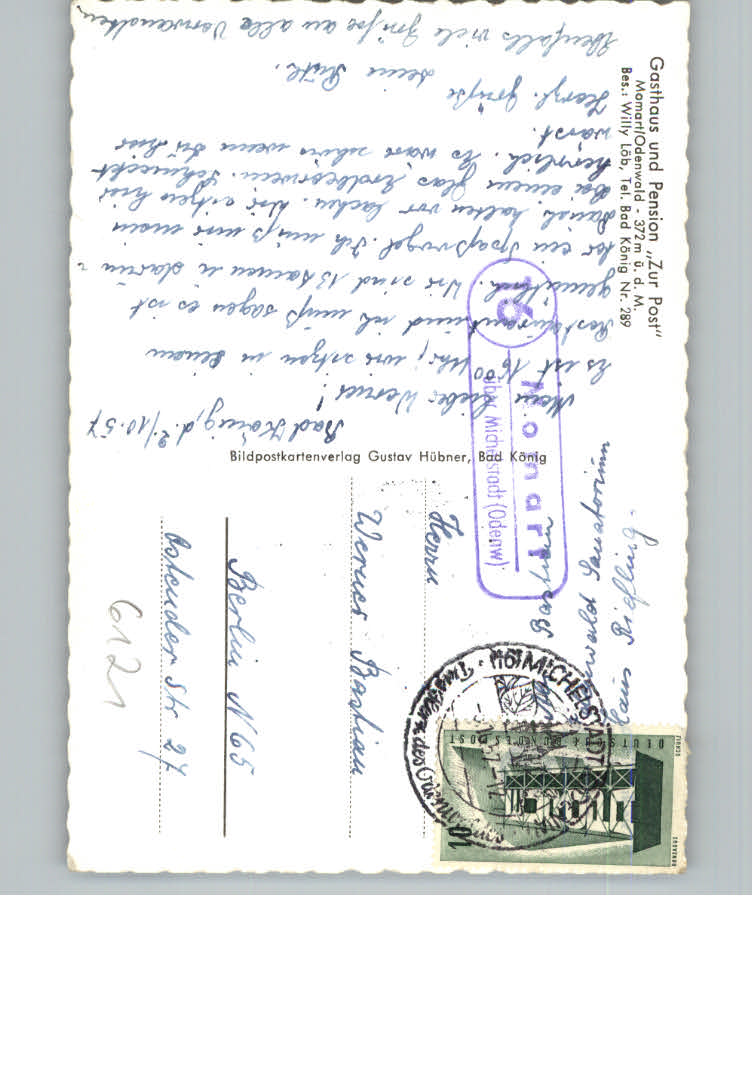 Gasthaus und Pension „Zur Post"
Momart/Odenwald - 372 m ü. d. M.
Bes.: Willy Löb, Tel. Bad König Nr. 289
Bad König, d. 2/10.57
Mein lieber Werner!
Es ist 16 00 Uhr, wir sitzen in einem
Restaurant und ich muß sagen es ist
gemütlich. Wir sind 13 Mann u. darun-
ter ein Spaßvogel. Ich muß mir mein
Bauch halten vor lachen. Wir sitzen hier
bei einem Glas Erdbeerwein. Schmeckt
herrlich. Es wäre schön wenn Du hier
wärst.
Herzl. Grüße
Deine Ruth.
Ebenfalls viele Grüße an alle Verwandten
Bildpostkartenverlag Gustav Hübner, Bad König
16
Momart
über Michelstadt (Odenw)
Bastian
Sanatorium
Haus
Herrn
Werner Bastian
Berlin N 65
Ostender Str 27
6121
(16) MICHELSTADT
des Odenwaldes
DEUTSCHE BUNDESPOST
10